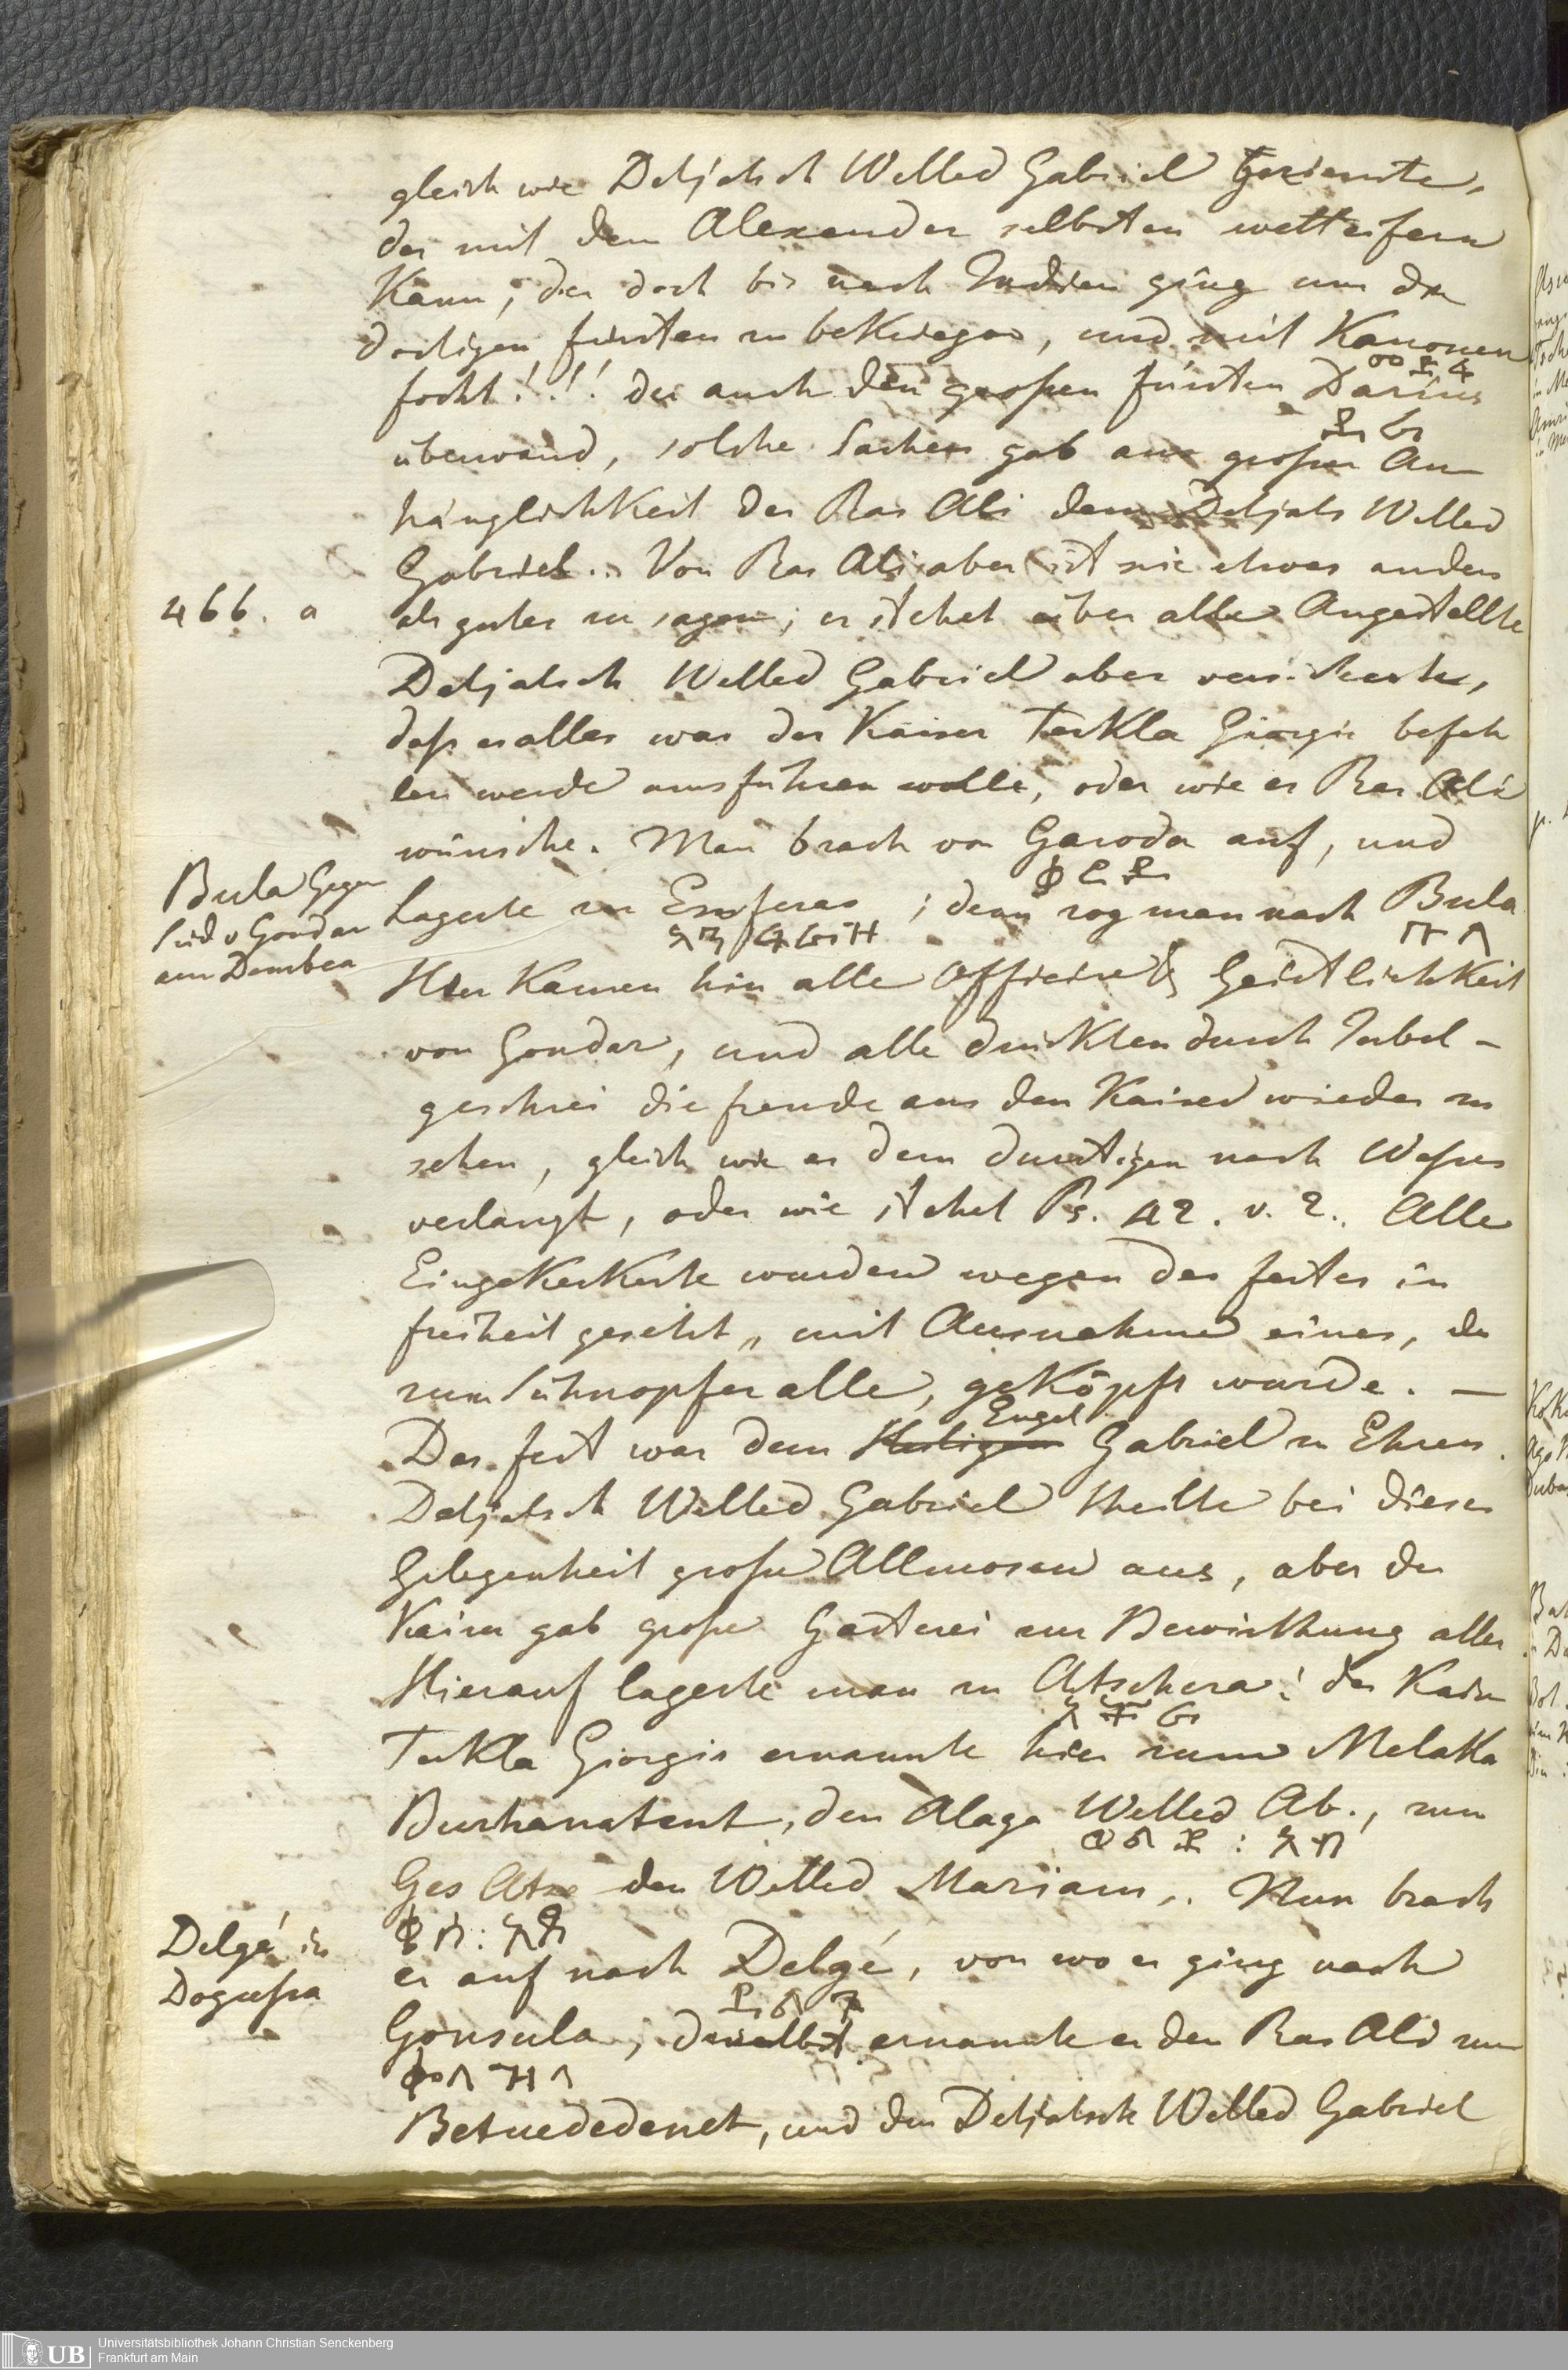 gleich wie Detjatsch Welled Gabriel geziemte,
der mit dem Alexander selbsten wetteifern
Kann, der doch bis nach Indien ging um die
dortigen fürsten zu beKriegen, und mit Kanonen
መድፍ
focht!!! der auch den großen fürsten Darius
ዳራ
überwand, solche Sachen gab aus großer An
hänglichKeit der Ras Ali dem Detjats Welled
Gabriel.. Von Ras Ali aber ist nie etwas anders
466. a
als gutes zu sagen; er stehet über alle Angestellte
Detjatsch Welled Gabriel aber versicherte,
daß er alles was der Kaiser TeKla Giorgis befeh
len werde ausführen wolle, oder wie es Ras Ali
wünsche. Man brach von Garoda auf, und
ቃሮዳ
Bula Gegen
Süd v Gondar
am Dembea
Lagerte zu Enferas; dann zog man nach Bula
እንፍራዝ
ቡላ
Hier Kamen hin alle Officire & GeistlichKeit
von Gondar, und alle drückten durch Jubel-
geschrei die freude aus den Kaiser wieder zu
sehen, gleich wie es dem durstigen nach Wasser
verlangt, oder wie stehet Ps. 42. v. 2. Alle
EingeKerKerte wurden wegen des festes in
freiheit gesetzt, mit Ausnahme eines, der
zum Sühnopfer alle, geKöpft wurde. —
Engel
Das fest war dem Heiligen Gabriel zu Ehren.
Detjatsch Welled Gabriel theilte bei dieser
Gelegenheit große Allmosen aus, aber der
Kaiser gab große Gasterei zur Bewirthung aller
Hierauf lagerte man zu Atschera; der Kaiser
አቸራ
TeKla Giorgis ernannte hier zum MelaKa
Burhanatent, den Alaga Welled Ab., zum
ወልደ : አብ
Ges Atze den Welled Mariam.. Nun brach
ቄስ : አፄ
Delgé in
Dagussa
er auf nach Delgé, von wo er ging nach
ደልጌ
Gonsula, daselbst ernannte er den Ras Ali zum
ቈላዝላ
Betuededenet, und den Detjatsch Welled Gabriel
UB
Universitätsbibliothek Johann Christian Senckenberg
Frankfurt am Main